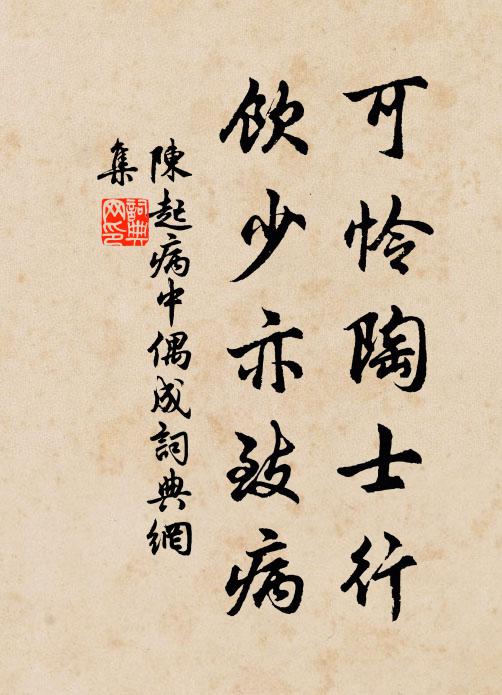 可怜陶士行
飲少亦致病
陳起病中偶成詞典網
集
詞典
网印